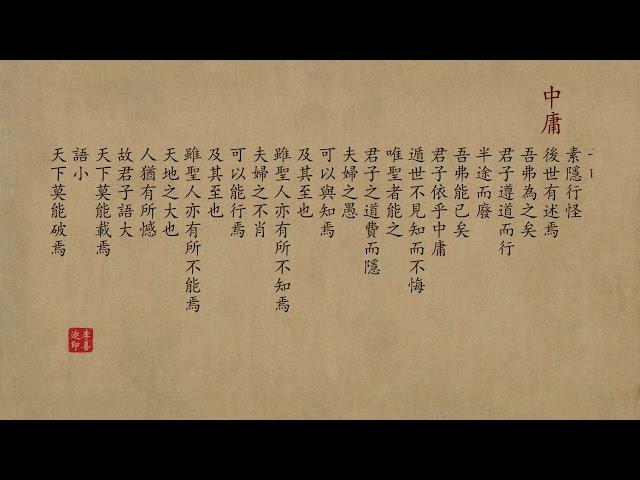 中庸
素隱行怪
後世有述焉
吾弗為之矣
君子遵道而行
半途而廢
吾弗能已矣
君子依乎中庸
遁世不見知而不悔
唯聖者能之
君子之道費而隱
夫婦之愚
可以與知焉
及其至也
雖聖人亦有所不知焉
夫婦之不肖
可以能行焉
及其至也
雖聖人亦有所不能焉
天地之大也
人猶有所憾
故君子語大
天下莫能載焉
語小
天下莫能破焉